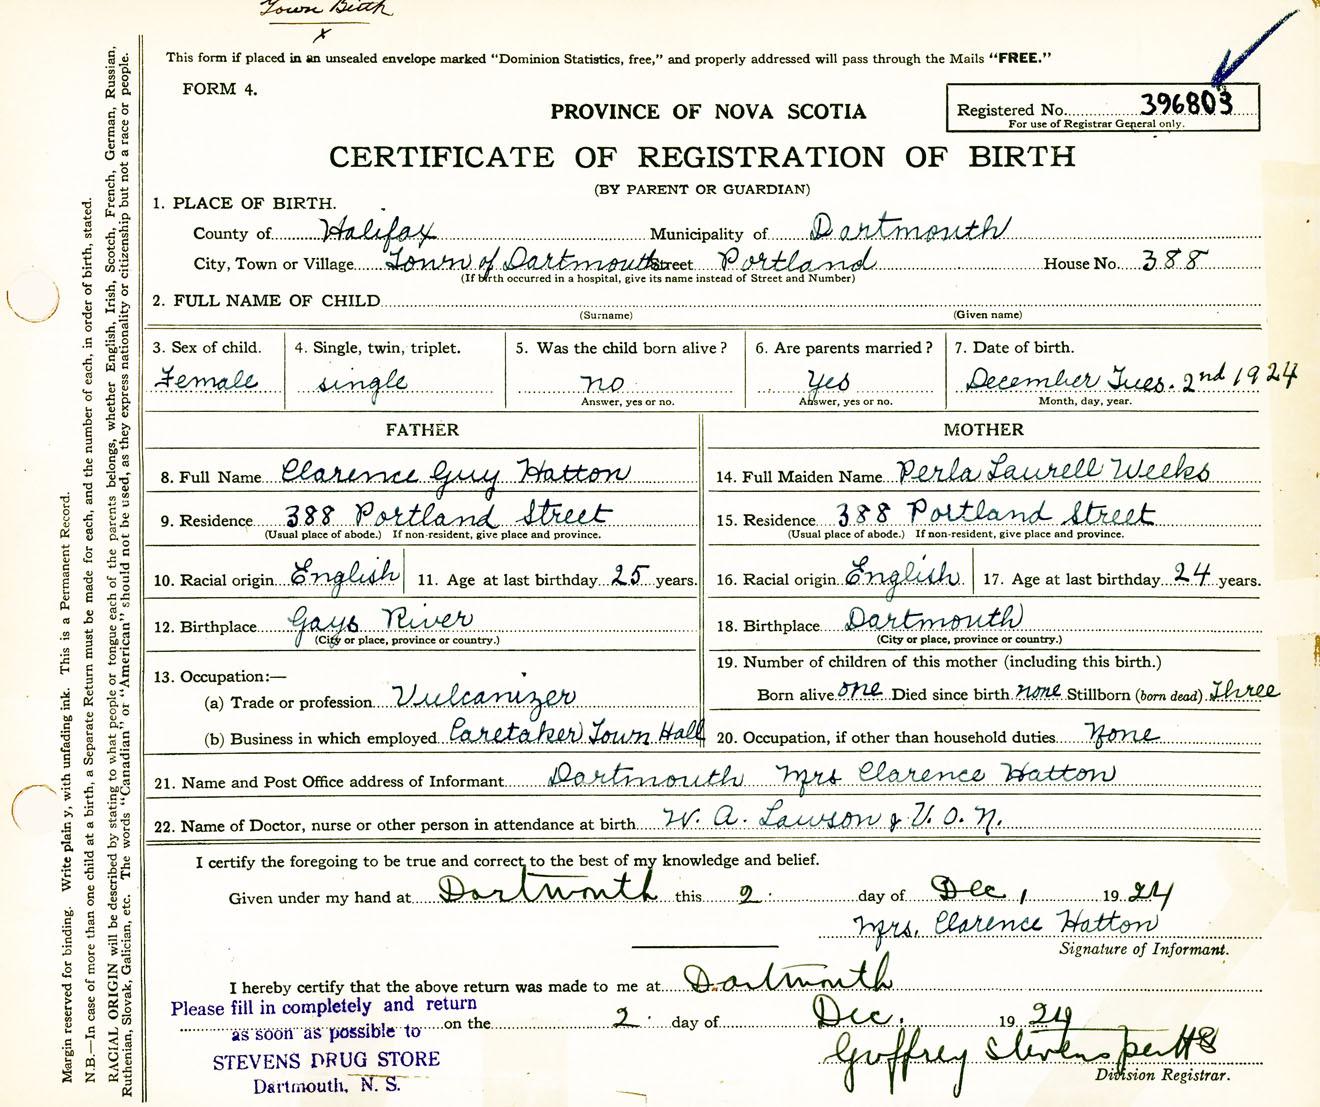 Town Birth
x
This form if placed in an unsealed envelope marked "Dominion Statistics, free," and properly addressed will pass through the Mails "FREE."
FORM 4.
PROVINCE OF NOVA SCOTIA
Registered No. 396803
For use of Registrar General only.
CERTIFICATE OF REGISTRATION OF BIRTH
(BY PARENT OR GUARDIAN)
1. PLACE OF BIRTH.
County of Halifax Municipality of Dartmouth
City, Town or Village Town of Dartmouth Street Portland House No. 388
(If birth occurred in a hospital, give its name instead of Street and Number)
2. FULL NAME OF CHILD
(Surname) (Given name)
3. Sex of child. 4. Single, twin, triplet. 5. Was the child born alive? 6. Are parents married? 7. Date of birth.
Female single no Yes December Tues. 2nd 1924
Answer, yes or no. Answer, yes or no. Month, day, year.
FATHER MOTHER
8. Full Name Clarence Guy Hatton 14. Full Maiden Name Perla Laurell Weeks
9. Residence 388 Portland Street 15. Residence 388 Portland Street
(Usual place of abode.) If non-resident, give place and province. (Usual place of abode.) If non-resident, give place and province.
10. Racial origin English 11. Age at last birthday 25 years. 16. Racial origin English 17. Age at last birthday 24 years.
12. Birthplace Gays River 18. Birthplace Dartmouth
(City or place, province or country.) (City or place, province or country.)
13. Occupation:— 19. Number of children of this mother (including this birth.)
(a) Trade or profession Vulcanizer Born alive one Died since birth none Stillborn (born dead) Three
(b) Business in which employed Caretaker Town Hall 20. Occupation, if other than household duties None
21. Name and Post Office address of Informant Dartmouth Mrs Clarence Hatton
22. Name of Doctor, nurse or other person in attendance at birth W. A. Lawson & V. O. N.
I certify the foregoing to be true and correct to the best of my knowledge and belief.
Given under my hand at Dartmouth this 2 day of Dec, 1924
Mrs. Clarence Hatton
Signature of Informant.
I hereby certify that the above return was made to me at Dartmouth
on the 2 day of Dec. 1924
Geoffrey Stevens per HS
Division Registrar.
Please fill in completely and return
as soon as possible to
STEVENS DRUG STORE
Dartmouth, N. S.
Margin reserved for binding. Write plainy, with unfading ink. This is a Permanent Record.
N.B.—In case of more than one child at a birth, a Separate Return must be made for each, and the number of each, in order of birth, stated.
RACIAL ORIGIN will be described by stating to what people or tongue each of the parents belongs, whether English, Irish, Scotch, French, German, Russian,
Ruthenian, Slovak, Galician, etc. The words "Canadian" or "American" should not be used, as they express nationality or citizenship but not a race or people.